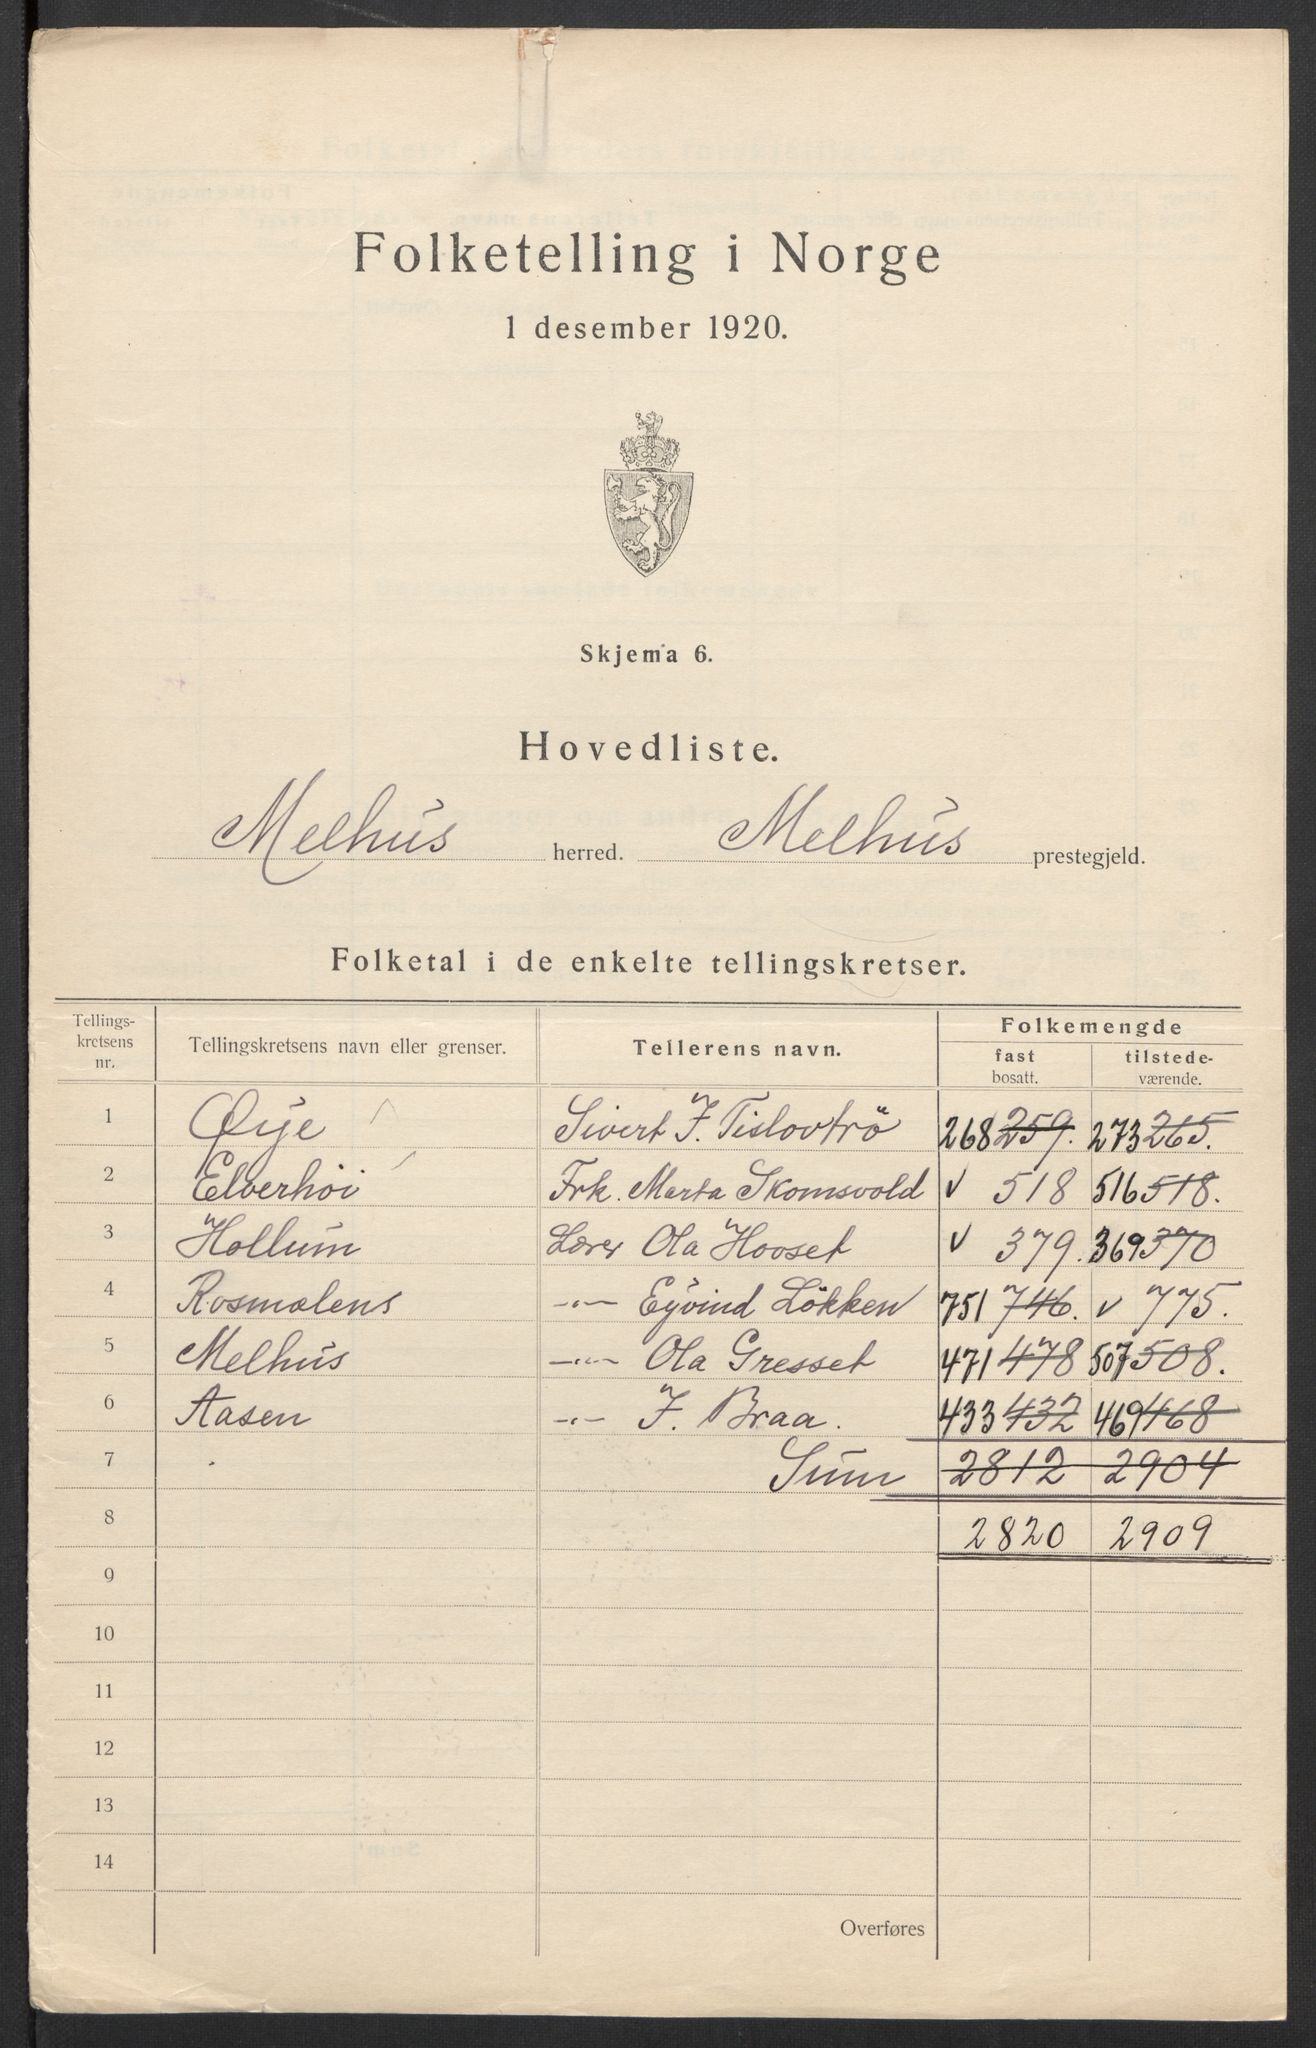 Folketelling i Norge
1 desember 1920.
Skjema 6.
Hovedliste.
Melhus herred. Melhus prestegjeld.
Folketal i de enkelte tellingskretser.
Tellings-
kretsens
nr.
Tellingskretsens navn eller grenser.
Tellerens navn.
Folkemengde
fast
bosatt.
tilstede-
værende.
1 Øye Sivert J. 268 259. 273 265.
2 Elverhöi Frk. Marta Skomsvold v 518 516 518.
3 Hollum Lærer Ola Hooset v 379. 369 370
4 Rosmælens -"- Eyvind Lökken 751 746. v 775.
5 Melhus -"- Ola Gresset 471 478 507 508.
6 Aasen -"- J. Braa. 433 432 469 468
7 Sum 2812 2904
8 2820 2909
9
10
11
12
13
14
Overføres